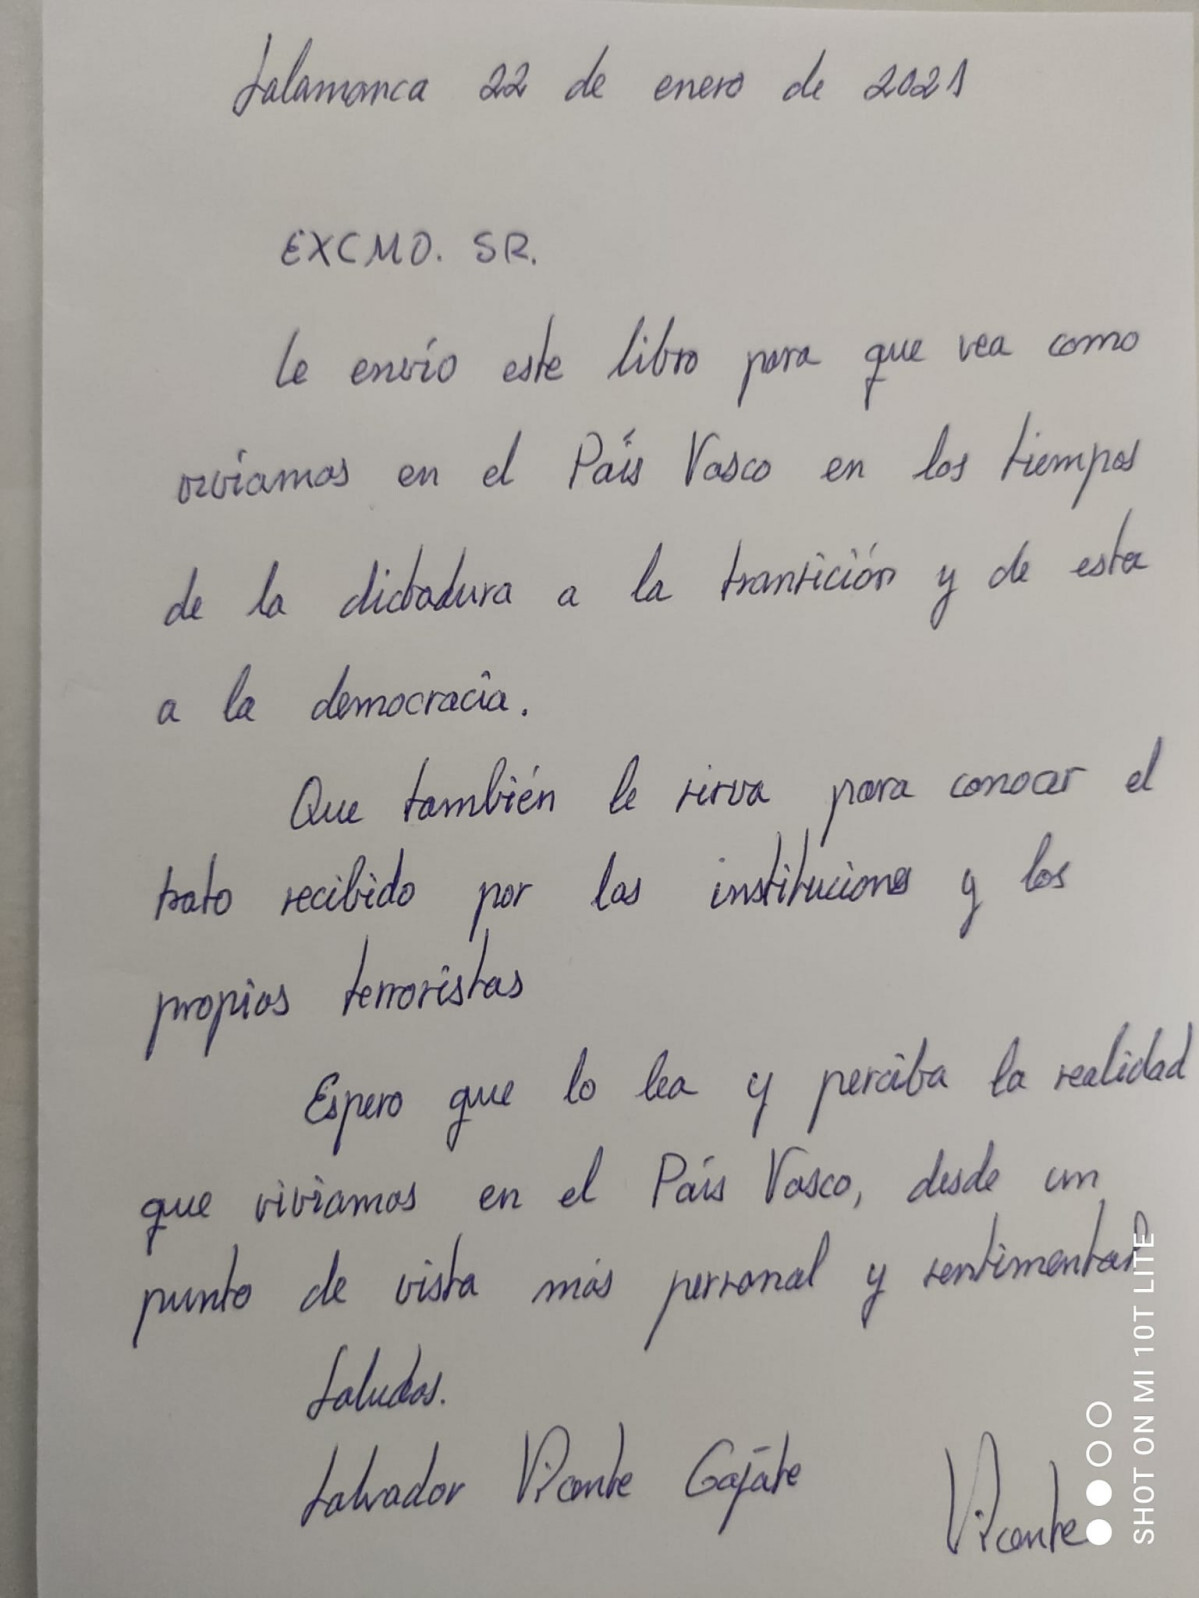 Salamanca 22 de enero de 2021
EXCMO. SR.
Le envío este libro para que vea como
vivíamos en el País Vasco en los tiempos
de la dictadura a la transición y de esta
a la democracia.
Que también le sirva para conocer el
trato recibido por las instituciones y los
propios terroristas
Espero que lo lea y perciba la realidad
que vivíamos en el País Vasco, desde un
punto de vista más personal y sentimental
Saludos.
Salvador Vicente Gajate
Vicente
SHOT ON MI 10T LITE